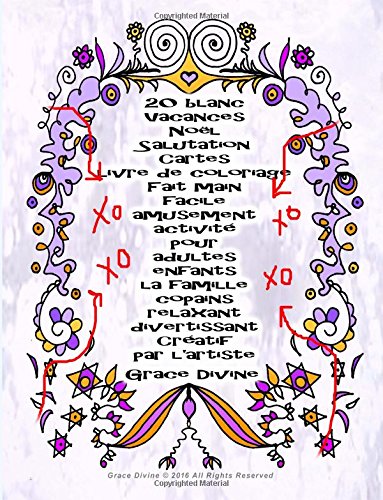 Copyrighted Material
20 blanc
Vacances
Noël
Salutation
Cartes
Livre de coloriage
Fait Main
Facile
amusement
activité
pour
adultes
enfants
la famille
copains
relaxant
divertissant
Créatif
par l'artiste
Grace Divine
XO
XO
XO
XO
Grace Divine © 2016 All Rights Reserved
Copyrighted Material